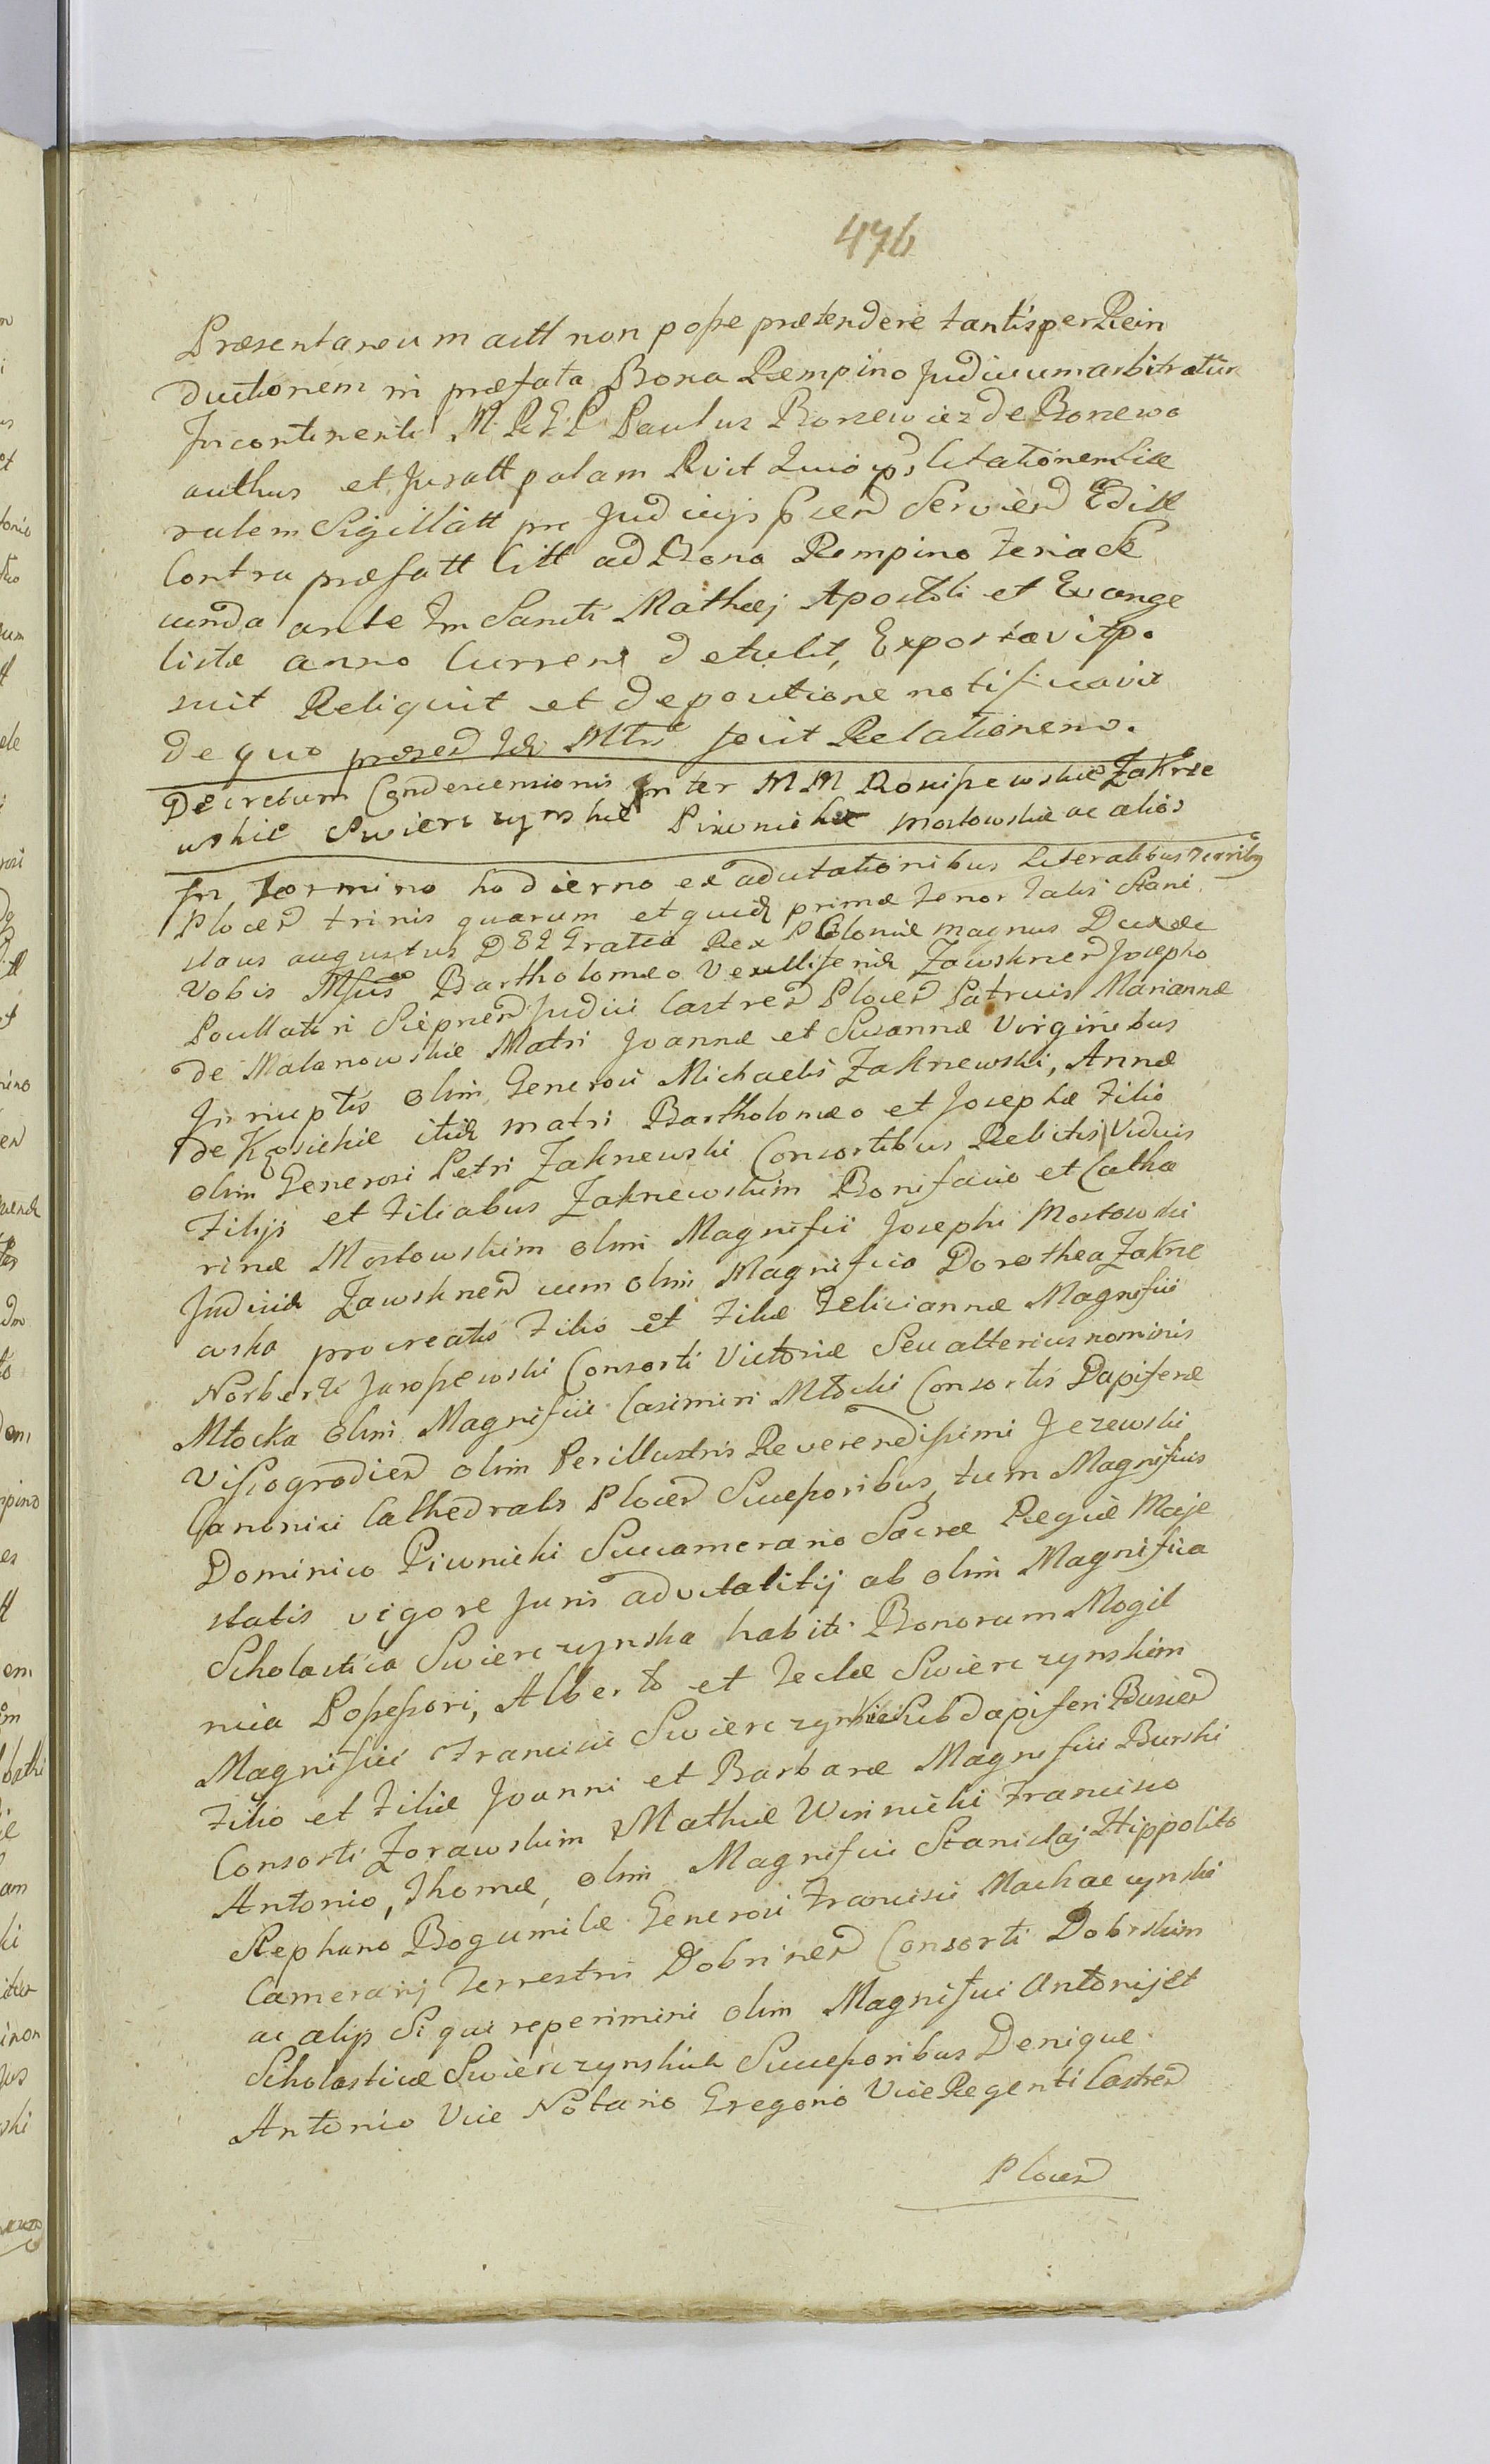 476
Præsentaneum actt non posse prætendere tantisper Rein
ductionem in præfata Bona Rempino Judicium arbitratur
Incontinenti M. R. G. P. Paulus Bonzewicz de Bonzewo
authus et Juratt palam Rvit Quio
ralem Sigillatt pre Judicijs Servien Editt
Contra præfatt Citt ad Bona Rempino feria
cunda ante Fm Sancti Mathæj Apostoli et Evange
listæ anno Curren detulit, Exportavit po
suit Reliquit et de positione notificavit
De quo præsen fecit Relationem.
Decretum Condescensionis Inter MM Rosciszewskie Zakrze
wskie Swierczynskie Piwnickie Mostowskie ac alios
In Termino hodierno ex adcitationibus Literalibus Terribus
Plocen trinis quarum et quidem primæ tenor talis Stani
slaus augustus DEI Gratia Rex Poloniæ magnus Dux &c
Vobis Mfcis Bartholomæo Vexillifero Zawskrnen Josepho
Pocillatori Sieprcen Judici Castren Plocen Patruis Mariannæ
de Malanowskie Matri Joannæ et Susannæ Virginibus
Innuptis olim Generosi Michaelis Zakrzewski, Annæ
de Kęsickie itid matri Bartholomæo et Josephæ Filio
olim Generosi Petri Zakrzewski Consortibus Relictis Viduis
Filijs et Filiabus Zakrzewskim Bonifacio et Catha
rinæ Mostowskim olim Magnifici Josephi Mostowski
Judicis Zawskrnen cum olim Magnifica Dorothea Zakrze
wska procreatis Filio et Filiæ Feliciannæ Magnifici
Norberti Jaroszewski Consorti Victoriæ Seu alterius nominis
Młocka olim Magnifici Casimiri Młocki Consortis Dapiferæ
Vissogrodien olim Perillustris Reverendissimi Jezewski
Canonici Cathedralis Plocen Successoribus, tum Magnificis
Dominico Piwnicki Succamerario Sacræ Regiæ Maje
statis vigore Juris advitalitij ab olim Magnifica
Scholastica Swierczynska habiti Bonorum Mogil
nica Possessori, Alberto et Teclæ Swierczynskim
Magnifici Francisci Swierczynski Subdapiferi Buscen
Filio et Filiæ Joanni et Barbaræ Magnifici Burski
Consorti Zorawskim Mathiæ Winnicki Francisco
Antonio, Thomæ, olim Magnifici Stanislaj Hippolito
Stephano Bogumilæ Generosi Francisci Machczynski
Camerarij Terrestris Dobrinen Consorti Dobrskim
ac alijs Si qui reperimini olim Magnifici Antonij et
Scholasticæ Swierczynskich Successoribus Denique
Antonio Vice Notario Gregorio Vice Regenti Castren
Plocen